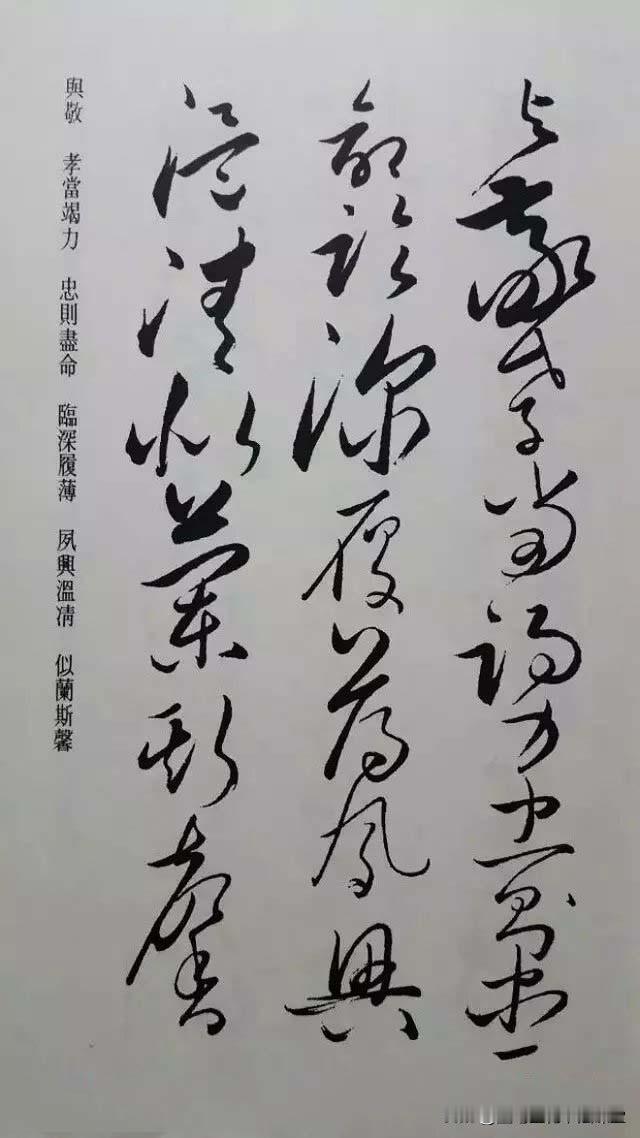 與敬孝當竭力忠則盡
命臨深履薄夙興
溫凊似蘭斯馨
與敬　孝當竭力　忠則盡命　臨深履薄　夙興溫凊　似蘭斯馨